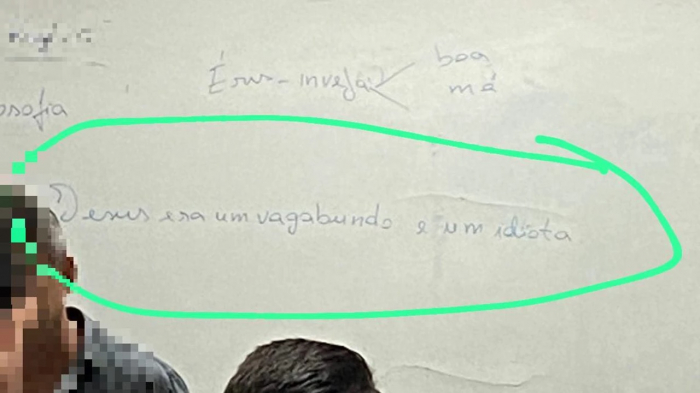 osofia
Érus - inveja
boa
má
Jesus era um vagabundo e um idiota